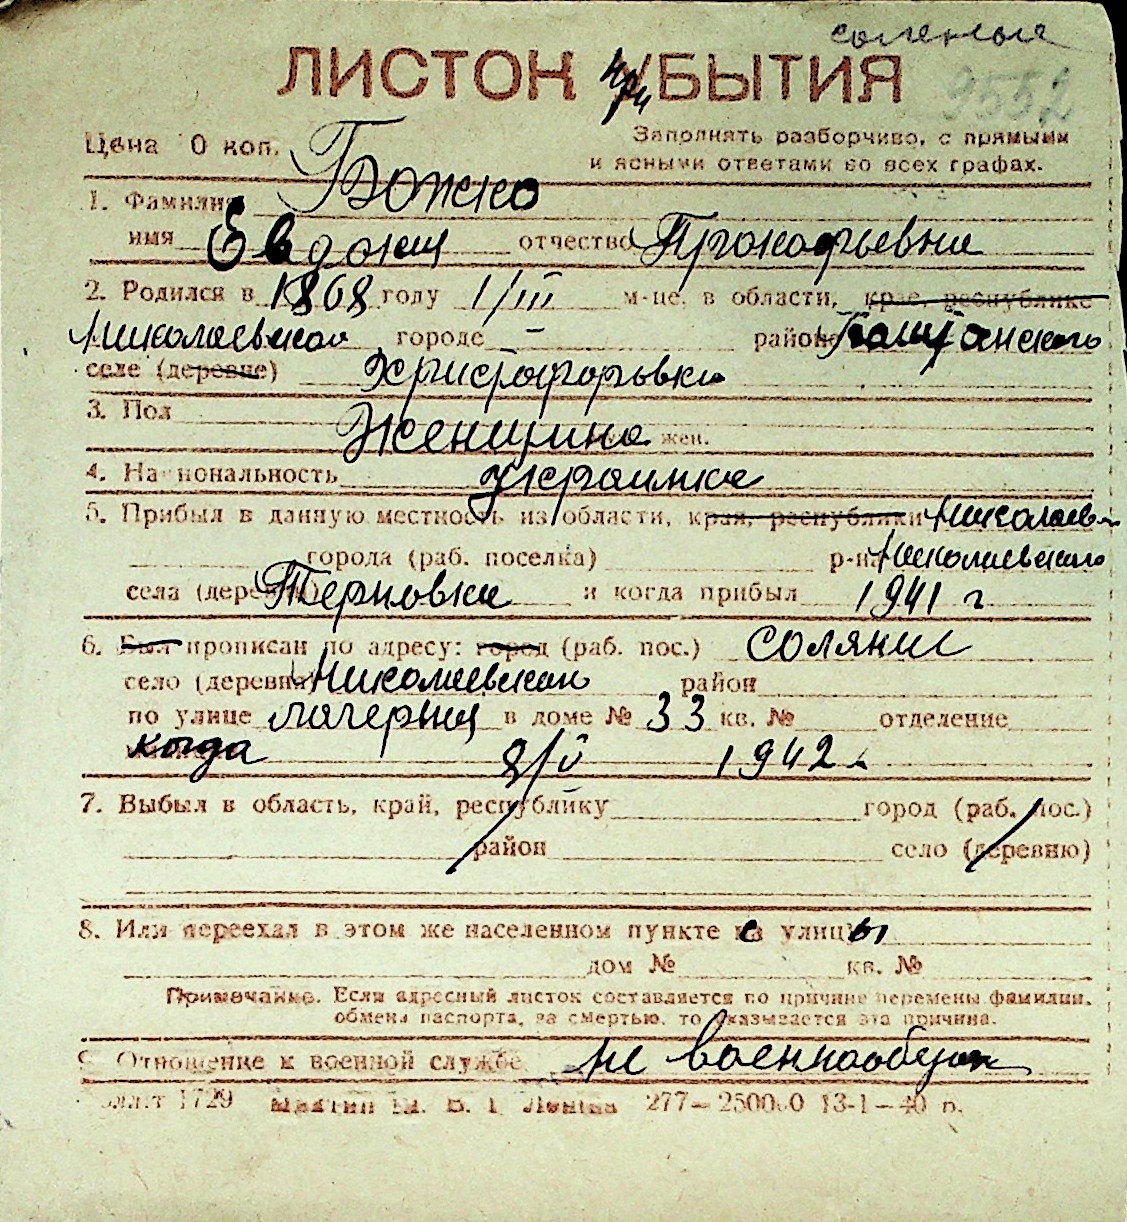 соленые
ЛИСТОК при/БЫТИЯ
9552
Цена 0 коп.
Заполнять разборчиво, с прямыми
и ясными ответами во всех графах.
1. Фамилия Божко
имя Евдокия отчество Прокофьевна
2. Родился в 1868 году 1/III м-це, в области, крае, республике
Николаевской городе – района Баштанского
селе (деревне) Христофоровка
3. Пол Женщина жен.
4. Национальность украинка
5. Прибыл в данную местность из области, края, республики Николаев
города (раб. поселка) р-на Николаевского
села (деревни) Терновки и когда прибыл 1941 г
6. Был прописан по адресу: город (раб. пос.) соляни
село (деревня) Николаевский район
по улице лагерня в доме № 33 кв. № отделение
когда 8/V 1942 г
7. Выбыл в область, край, республику город (раб. пос.)
район село (деревню)
8. Или переехал в этом же населенном пункте с улицы
дом № кв. №
Примечание. Если адресный листок составляется по причине перемены фамилии,
обмена паспорта, за смертью, то указывается эта причина.
9. Отношение к военной службе не военнообязан
1729 Ленина 277—250000 13-1—40 р.